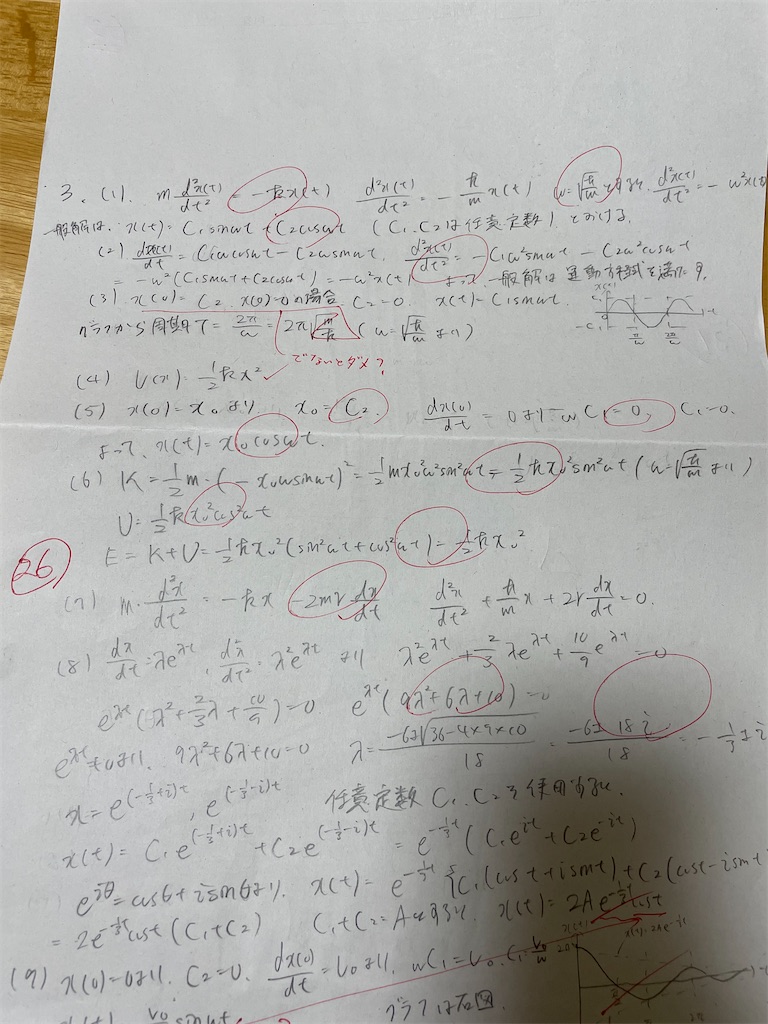 3. (1). m d²x(t)/dt² = -kx(t) d²x(t)/dt² = - k/m x(t) ω=√(k/m) とすると, d²x(t)/dt² = -ω²x(t)
一般解は, x(t) = C₁sinωt + C₂cosωt (C₁, C₂は任意定数) とおける.
(2) dx(t)/dt = C₁ωcosωt - C₂ωsinωt. d²x(t)/dt² = -C₁ω²sinωt - C₂ω²cosωt
= -ω²(C₁sinωt+C₂cosωt) = -ω²x(t) よって, 一般解は運動方程式を満たす.
(3) x(0) = C₂. x(0)=0の場合 C₂=0. x(t)=C₁sinωt.
グラフから周期T = 2π/ω = 2π√(m/k) (ω=√(k/m) より)
x(t) C₁ -C₁ t π/ω 2π/ω
でないとダメ?
(4) U(x) = 1/2 kx²
(5) x(0)=x₀より x₀=C₂, dx(0)/dt = 0より ωC₁=0, C₁=0.
よって, x(t)=x₀cosωt.
(6) K = 1/2 m・(-x₀ωsinωt)² = 1/2 mx₀²ω²sin²ωt = 1/2 kx₀²sin²ωt (ω=√(k/m) より)
U = 1/2 kx₀²cos²ωt
E = K+U = 1/2 kx₀²(sin²ωt+cos²ωt) = 1/2 kx₀²
26
(7) m・d²x/dt² = -kx -2mγ dx/dt d²x/dt² + k/m x + 2γ dx/dt = 0.
(8) dx/dt = λe^λt, d²x/dt² = λ²e^λt より λ²e^λt + 2/3 λe^λt + 10/9 e^λt = 0
e^λt(λ²+2/3 λ+10/9) = 0 e^λt(9λ²+6λ+10) = 0
e^λt≠0より, 9λ²+6λ+10=0 λ = (-6±√(36-4×9×10))/18 = (-6±18i)/18 = -1/3±i
x = e^(-1/3+i)t, e^(-1/3-i)t 任意定数C₁, C₂を使用すると.
x(t) = C₁e^(-1/3+i)t + C₂e^(-1/3-i)t = e^-1/3t (C₁e^it + C₂e^-it)
e^iθ = cosθ+isinθより, x(t) = e^-1/3t {C₁(cost+isint)+C₂(cost-isint
= 2e^-1/3t cost (C₁+C₂) C₁+C₂=Aとすると, x(t) = 2Ae^-1/3t cost
(9) x(0)=0より, C₂=0. dx(0)/dt = v₀より, ωC₁=v₀. C₁=v₀/ω
v₀/ω sinωt グラフは右図.